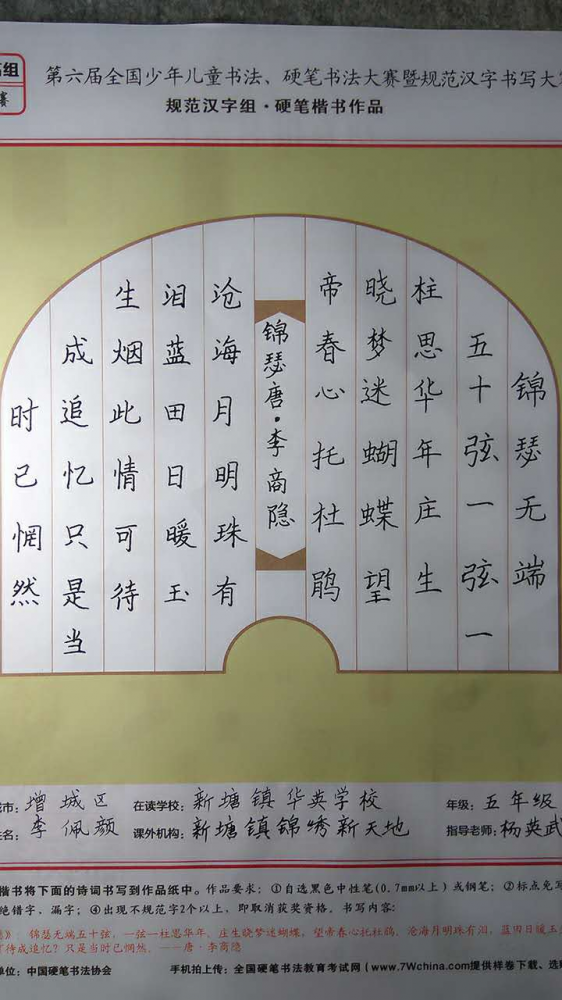 组
赛
第六届全国少年儿童书法、硬笔书法大赛暨规范汉字书写大
规范汉字组·硬笔楷书作品
锦瑟无端
五十弦一弦一
柱思华年庄生
晓梦迷蝴蝶望
帝春心托杜鹃
锦瑟唐·李商隐
沧海月明珠有
泪蓝田日暖玉
生烟此情可待
成追忆只是当
时已惘然
市：增城区 在读学校：新塘镇华英学校 年级：五年级
名：李佩颜 课外机构：新塘镇锦绣新天地 指导老师：杨英武
楷书将下面的诗词书写到作品纸中。作品要求：①自选黑色中性笔(0.7mm以上)或钢笔；②标点免写
绝错字，漏字；④出现不规范字2个以上，即取消获奖资格。书写内容：
》 锦瑟无端五十弦，一弦一柱思华年。庄生晓梦迷蝴蝶，望帝春心托杜鹃。沧海月明珠有泪，蓝田日暖玉
可待成追忆？只是当时已惘然。——唐·李商隐
单位：中国硬笔书法协会 手机拍上传：全国硬笔书法教育考试网(www.7Wchina.com提供样卷下载、选